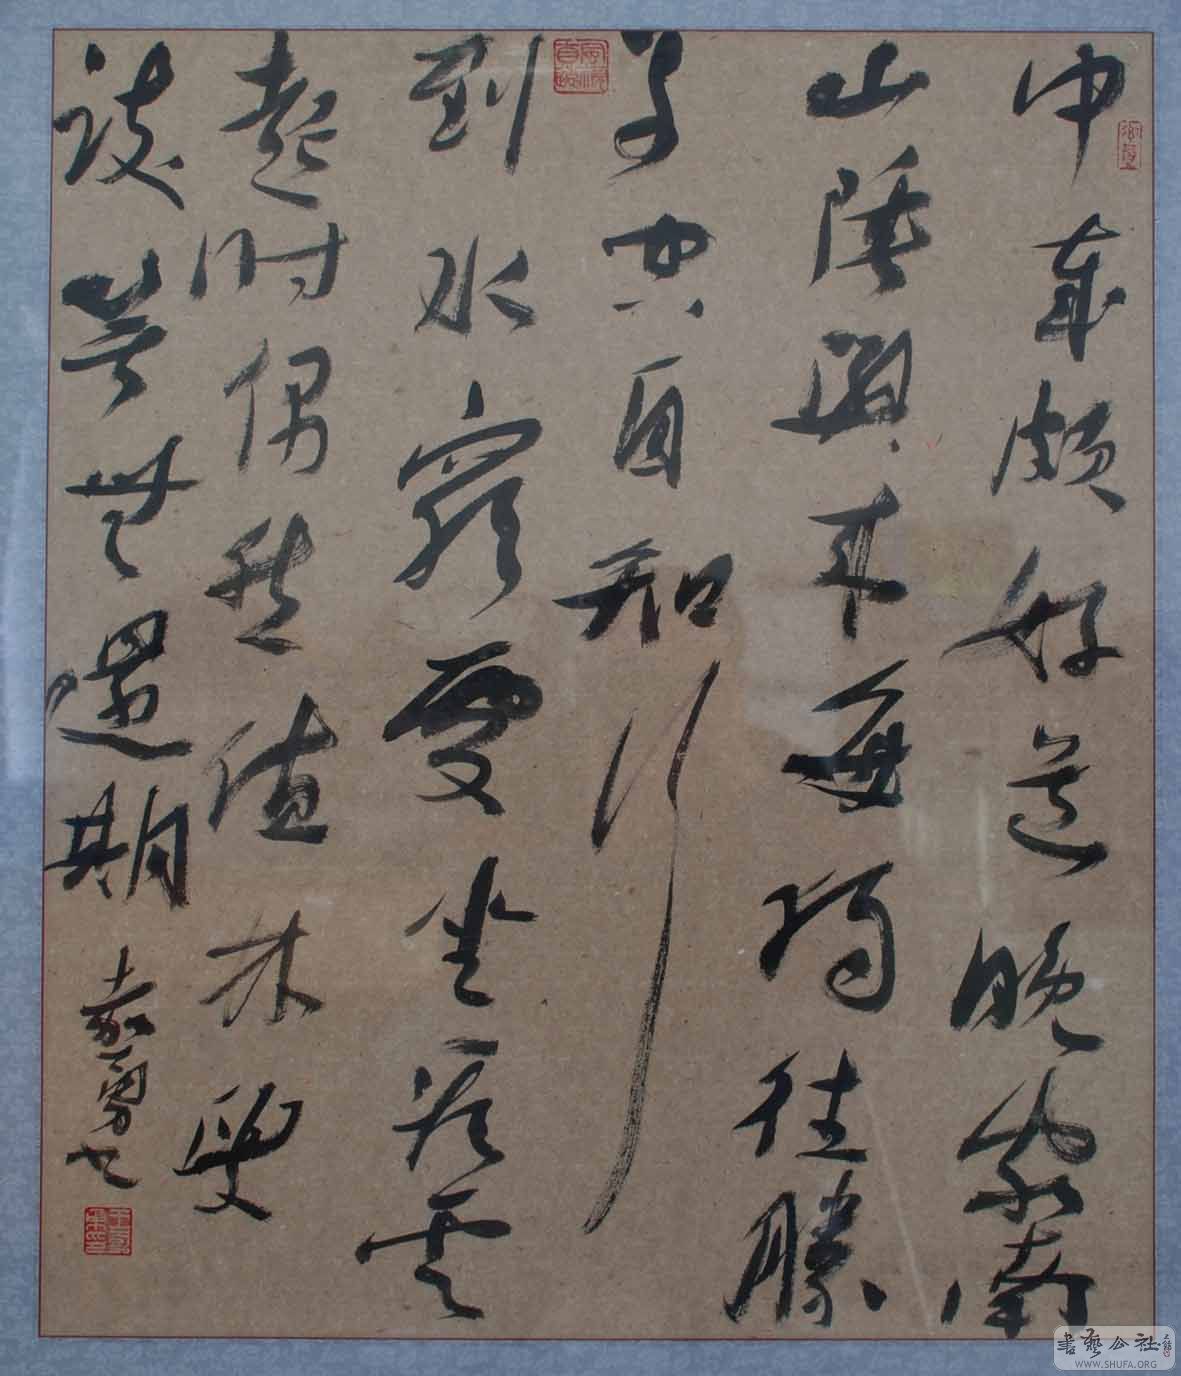 中歲頗好道晚家南
山陲興来每獨往勝
事空自知行
到水窮處坐看云
起時偶然值林叟
談笑無還期
嘉勇书
書藝公社
WWW.SHUFA.ORG